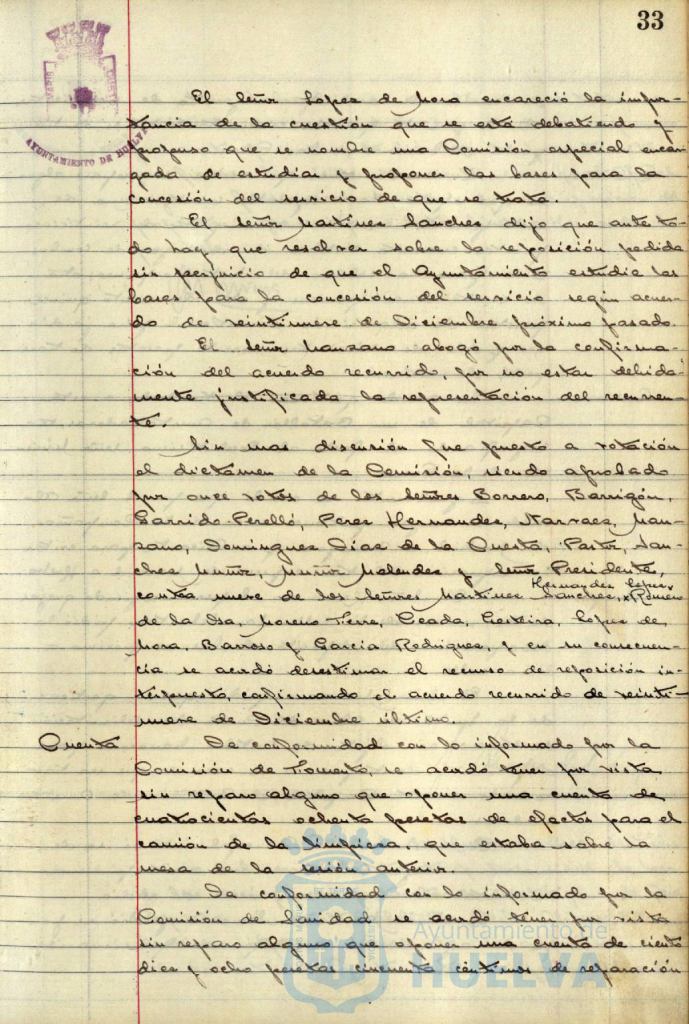 33
AYUNTAMIENTO DE HUELVA
El Señor Lopez de Mora encareció la impor-
tancia de la cuestión que se está debatiendo y
propuso que se nombre una Comisión especial encar-
gada de estudiar y proponer las bases para la
concesión del servicio de que se trata.
El Señor Martinez Sanchez dijo que ante to-
do hay que resolver sobre la reposición pedida
sin perjuicio de que el Ayuntamiento estudie las
bases para la concesión del servicio según acuer-
do de veintinueve de Diciembre próximo pasado.
El Señor Manzano abogó por la confirma-
ción del acuerdo recurrido, por no estar debida-
mente justificada la representación del recurren-
te.
Sin mas discusión fue puesto a votación
el dictámen de la Comisión, siendo aprobado
por once votos de los Señores Borrero, Barrigón,
Garrido Perelló, Perez Hernandez, Narvaez, Man-
zano, Dominguez Diaz de la Questa, Pastor, San-
chez Muñiz, Muñiz Melendez y Señor Presidente,
Hernandez Lopez
contra nueve de los Señores Martinez Sanchez, x Romero
de la Isa, Moreno Terre, Ceada, Lopez de
Mora, Barroso y Garcia Rodriguez, y en su consecuen-
cia se acordó desestimar el recurso de reposición in-
terpuesto, confirmando el acuerdo recurrido de veinti-
nueve de Diciembre último.
Cuenta
De conformidad con lo informado por la
Comisión de Fomento, se acordó tener por vista
sin reparo alguno que oponer una cuenta de
cuatrocientas ochenta pesetas de efectos para el
camión de la limpieza, que estaba sobre la
mesa de la sesión anterior.
De conformidad con lo informado por la
Comisión de Sanidad se acordó tener por vista
sin reparo alguno que oponer una cuenta de ciento
diez y ocho pesetas cincuenta céntimos de reparación
Ayuntamiento de
HUELVA